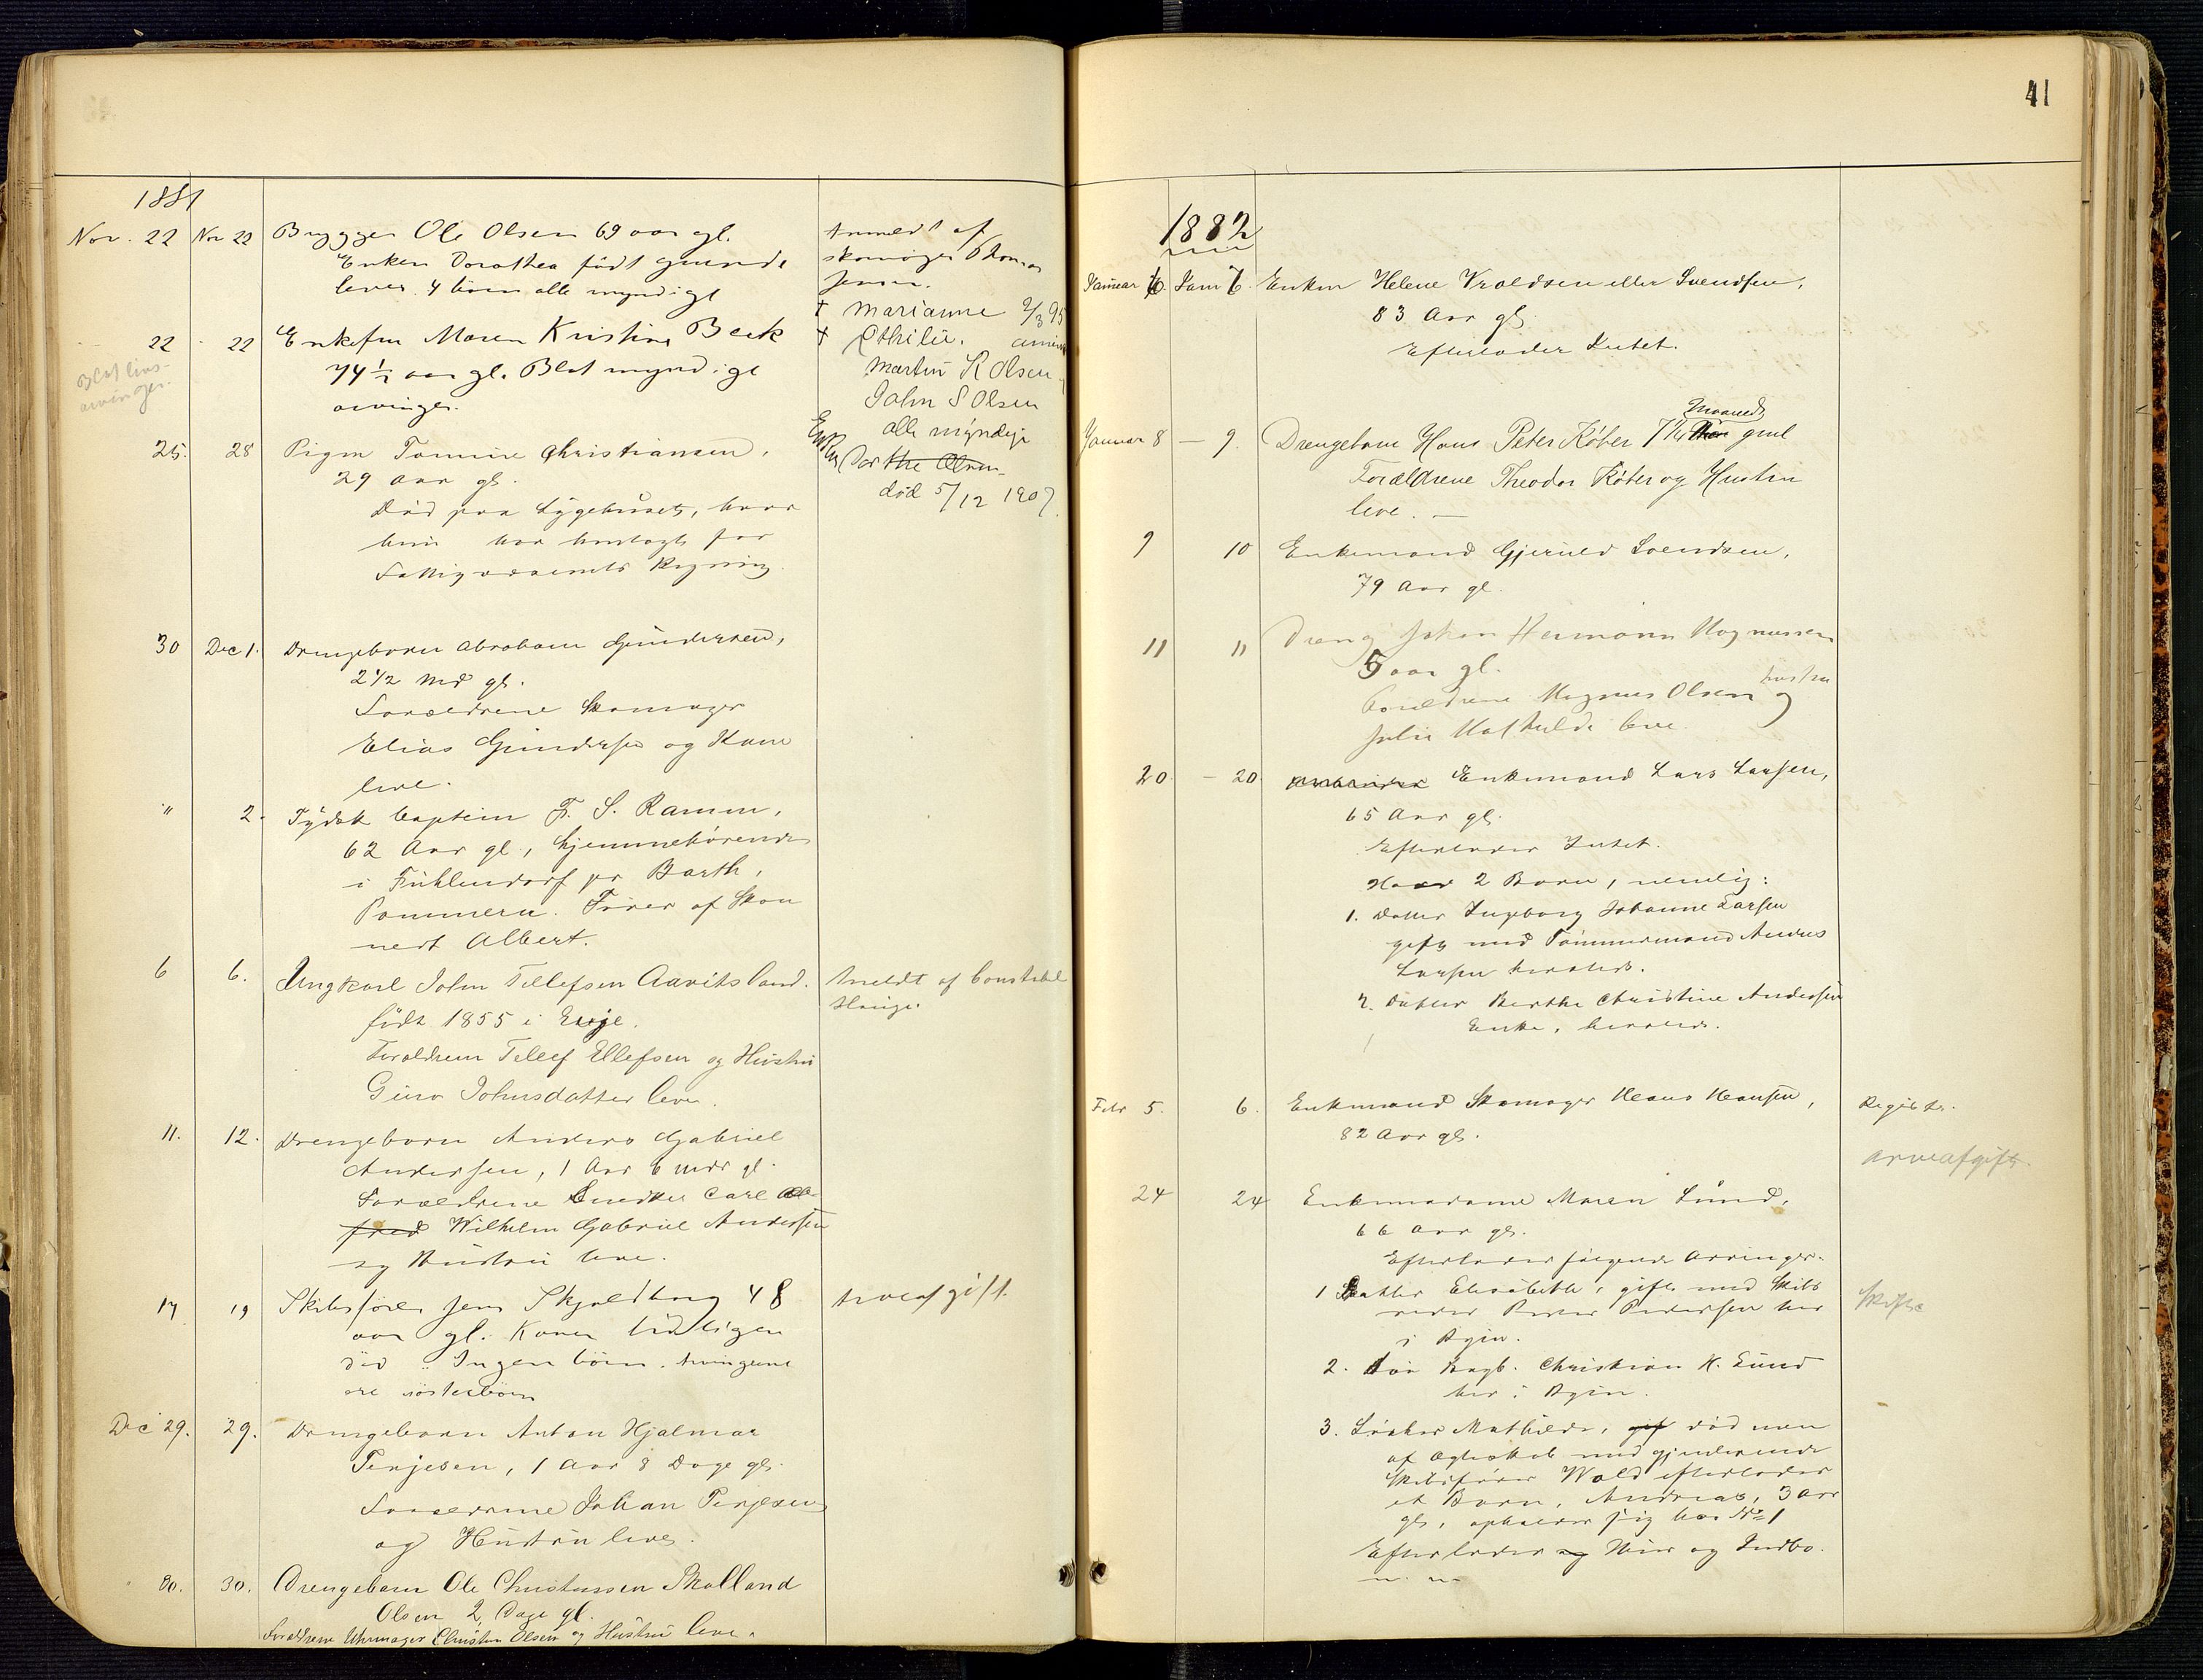 1881
Nov. 22 Nov 22 Brygger Ole Olsen 69 aar gl.
Enken Dorothea født
lever. 4 børn alle myndige
Anmeldt af
skomager Thomas
Jensen.
† Marianne 2/3 95
† Othilie.
Martin K Olsen
John S Olsen
alle myndige
Enken Dorthe Olsen
død 5/12 1907.
22 22 Enkefru Maren Kristine Beck
74 1/2 aar gl. Blot myndige
arvinger.
Blot livs-
arvinger.
25. 28 Pigen Tomine Christiansen,
29 Aar gl.
Død paa Sygehuset, hvor
hun var indlagt for
Fattigvæsenets Regning.
30 Dec 1. Drengebarn Abraham Gundersen,
2 1/2 Md gl.
Forældrene Skomager
Elias Gundersen og Kone
leve.
" 2. Tydsk Captein F. S. Ramm,
62 Aar gl., hjemmehørende
i Fuhlendorf pr Barth,
Pommern. Fører af Skon
nert Albert.
6 6. Ungkarl John Tellefsen Aavitsland.
født 1855 i Evje.
Forældrene Tellef Ellefsen og Hustru
Guro Johnsdatter lever.
Anmeldt af Constabel
Hauge.
11. 12. Drengebarn Anders Gabriel
Andersen, 1 Aar 6 Mdr gl.
Forældrene Snedker Carl Al-
fred Wilhelm Gabriel Andersen
og Hustru leve.
17 19 Skibsfører Jens Skjoldborg 48
aar gl. Konen tidligere
død. Ingen børn. Arvingerne
ere søsterbørn
Arveafgift.
Dec 29. 29. Drengebarn Anton Hjalmar
Terjesen, 1 Aar 8 Dage gl.
Forældrene Johan Terjesen
og Hustru leve.
30. 30. Drengebarn Ole Christiassen Skolland
Olsen 2 Dage gl.
Forældrene Uhrmager Christen Olsen og Hustru leve.
41
1882
Januar 6. Jan 7. Enken Helene Vroldsen eller Svendsen,
83 Aar gl.
Efterlader Intet.
Januar 8 — 9. Drengebarn Hans Peter Köber 7 1/2 Maaneds gml
Forældrene Theodor Köber og Hustru
leve. —
9 10 Enkemand Gjeruld Svendsen,
79 Aar gl.
11 11 Dreng Johan Hermann Magnussen
5 aar gl.
Forældrene Magnus Olsen og hustru
Julie Mathilde leve.
20 — 20. Enkemand Lars Larsen,
65 Aar gl.
Efterlader Intet.
Har 2 Børn, nemlig:
1. Datter Ingeborg Johanne Larsen
gift med Tømmermand Andres
Larsen
2. Datter Berthe Christine Andersen
Enke,
Febr 5. 6. Enkemand Skomager Hans Hansen,
82 Aar gl.
Registr.
Arveafgift.
24 24 Enkemadame Maren Lund,
66 Aar gl.
Efterlader følgende Arvinger.
1 Datter Elisabeth, gift med Skibs
reder Peder Pedersen her
i Byen.
Skifte
2. Søn Bagb. Christian H. Lund
her i Byen.
3. Datter Mathilde, gif død men
af Ægteskab med gjenlevende
Skibsfører Wold efterlader
et Barn, Andreas, 3 Aar
gl., opholder sig hos No 1
Efterlader og Huus og Indbo.